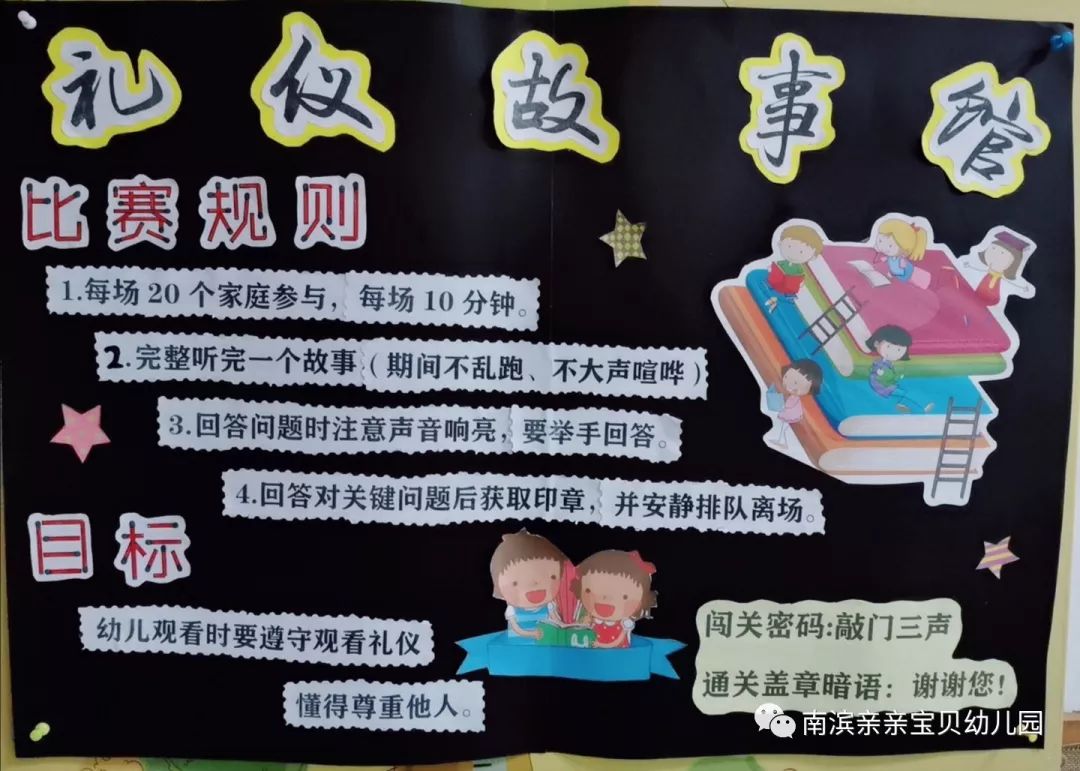 礼仪故事馆
比赛规则
1.每场20个家庭参与，每场10分钟。
2.完整听完一个故事（期间不乱跑、不大声喧哗）
3.回答问题时注意声音响亮，要举手回答。
4.回答对关键问题后获取印章，并安静排队离场。
目标
幼儿观看时要遵守观看礼仪
懂得尊重他人。
闯关密码:敲门三声
通关盖章暗语：谢谢您！
南滨亲亲宝贝幼儿园